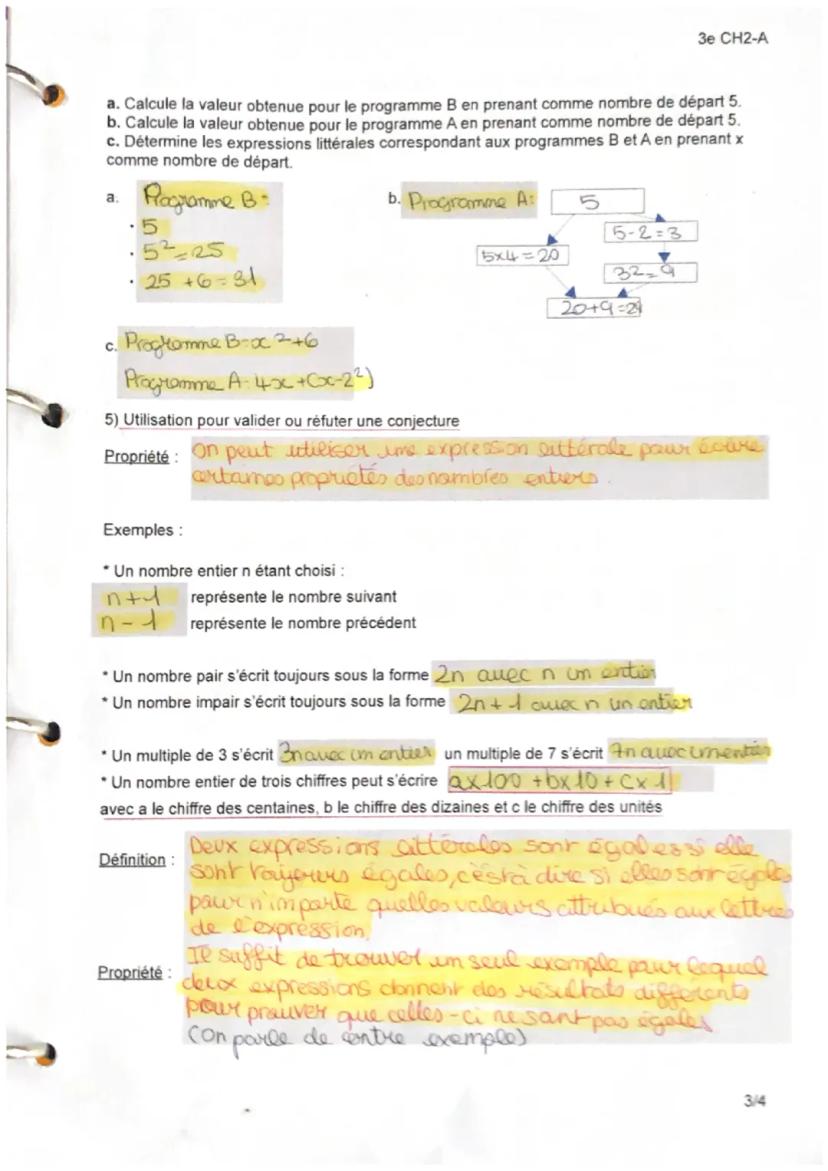 3e CH2-A
a. Calcule la valeur obtenue pour le programme B en prenant comme nombre de départ 5.
b. Calcule la valeur obtenue pour le programme A en prenant comme nombre de départ 5.
c. Détermine les expressions littérales correspondant aux programmes B et A en prenant x
comme nombre de départ.
a. Programme B:
· 5
· 5² = 25
· 25 + 6 = 31
b. Programme A:
5
5-2=3
5x4=20
3²=9
20+9=29
c. Programme B=x²+6
Programme A: 4x+(x-2²)
5) Utilisation pour valider ou réfuter une conjecture
Propriété : On peut utiliser une expression littérale pour écrire
certaines propriétés des nombres entiers.
Exemples :
* Un nombre entier n étant choisi :
n+1 représente le nombre suivant
n-1 représente le nombre précédent
* Un nombre pair s'écrit toujours sous la forme 2n avec n un entier
* Un nombre impair s'écrit toujours sous la forme 2n+1 avec n un entier
* Un multiple de 3 s'écrit 3n avec un entier un multiple de 7 s'écrit 7n avec un entier
* Un nombre entier de trois chiffres peut s'écrire ax100+bx10+cx1
avec a le chiffre des centaines, b le chiffre des dizaines et c le chiffre des unités
Définition : Deux expressions littérales sont égales si elle
sont toujours égales, c'est à dire si elles sont égales
pour n'importe quelles valeurs attribués aux lettres
de l'expression.
Propriété : Il suffit de trouver un seul exemple pour lequel
deux expressions donnent des résultats différents
pour prouver que celles-ci ne sont pas égales
(On parle de contre exemple)
3/4